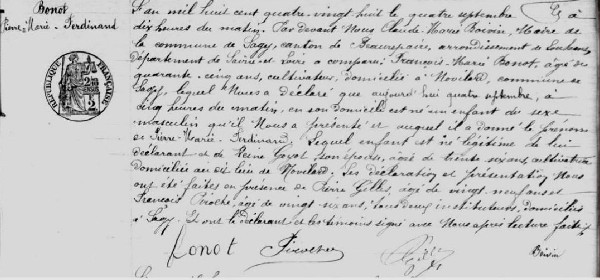 Bonot
Pierre-Marie-Ferdinand
RÉPUBLIQUE FRANÇAISE
L'an mil huit cent quatre-vingt huit le quatre septembre à
dix heures du matin, Par devant Nous Claude Marie Boivin, Maire de
la commune de Sagy, canton de Beaurepaire, arrondissement de Louhans,
Département de Saône et Loire a comparu François-Marie Bonot, âgé de
quarante-cinq ans, cultivateur, domicilié à Novilard, commune de
Sagy, lequel Nous a déclaré que aujourd'hui quatre septembre, à
cinq heures du matin, en son domicile est né un enfant de sexe
masculin qu'il Nous a présenté et auquel il a donné le prénom
de Pierre-Marie-Ferdinand. Lequel enfant est né légitime de lui
déclarant et de Reine Goyot son épouse, âgée de trente six ans, cultivatrice
domiciliée au dit lieu de Novilard. Les déclaration et présentation Nous
ont été faites en présence de Pierre Gilles, âgé de vingt-neuf ans et
François Pioche, âgé de vingt-six ans, tous deux instituteurs, domiciliés
à Sagy. Et ont le déclarant et les témoins signé avec Nous après lecture faite.
Bonot Pioche Gilles Boivin